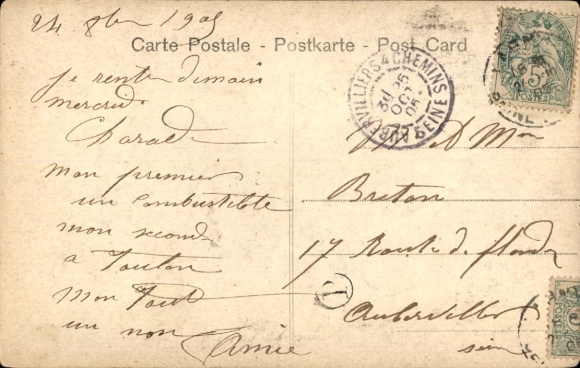 24 8bre 1905
Carte Postale - Postkarte - Post Card
je rentre demain
mercredi
Charade
mon premier
un combustible
mon second
a Toulon
mon Tout
un nom
Amie
AUBERVILLIERS 4 CHEMINS
SEINE
25
OCT
05
Mon
Breton
17 Route de flandre
Aubervilliers
Seine
T
5
POSTES